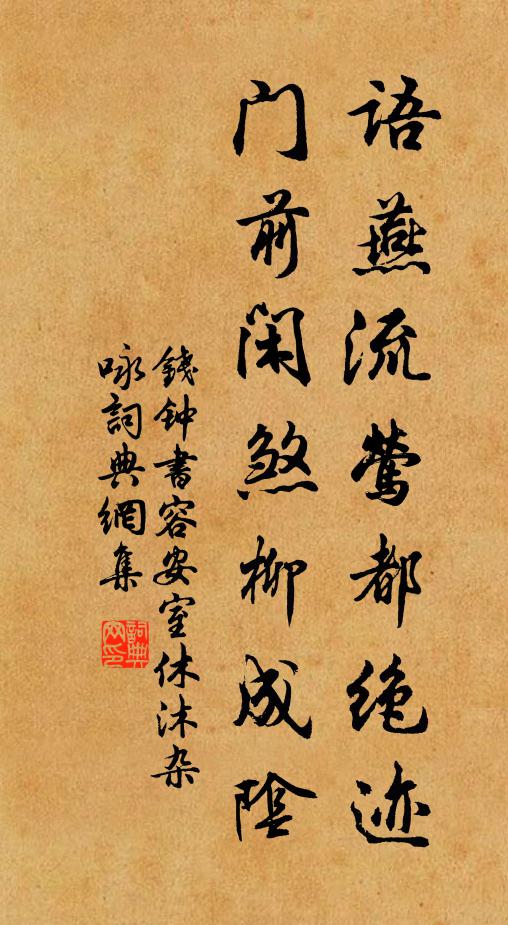 语燕流莺都绝迹
门前闲煞柳成陰
錢钟書容安室休沐杂
咏詞典網集
詞典
网印